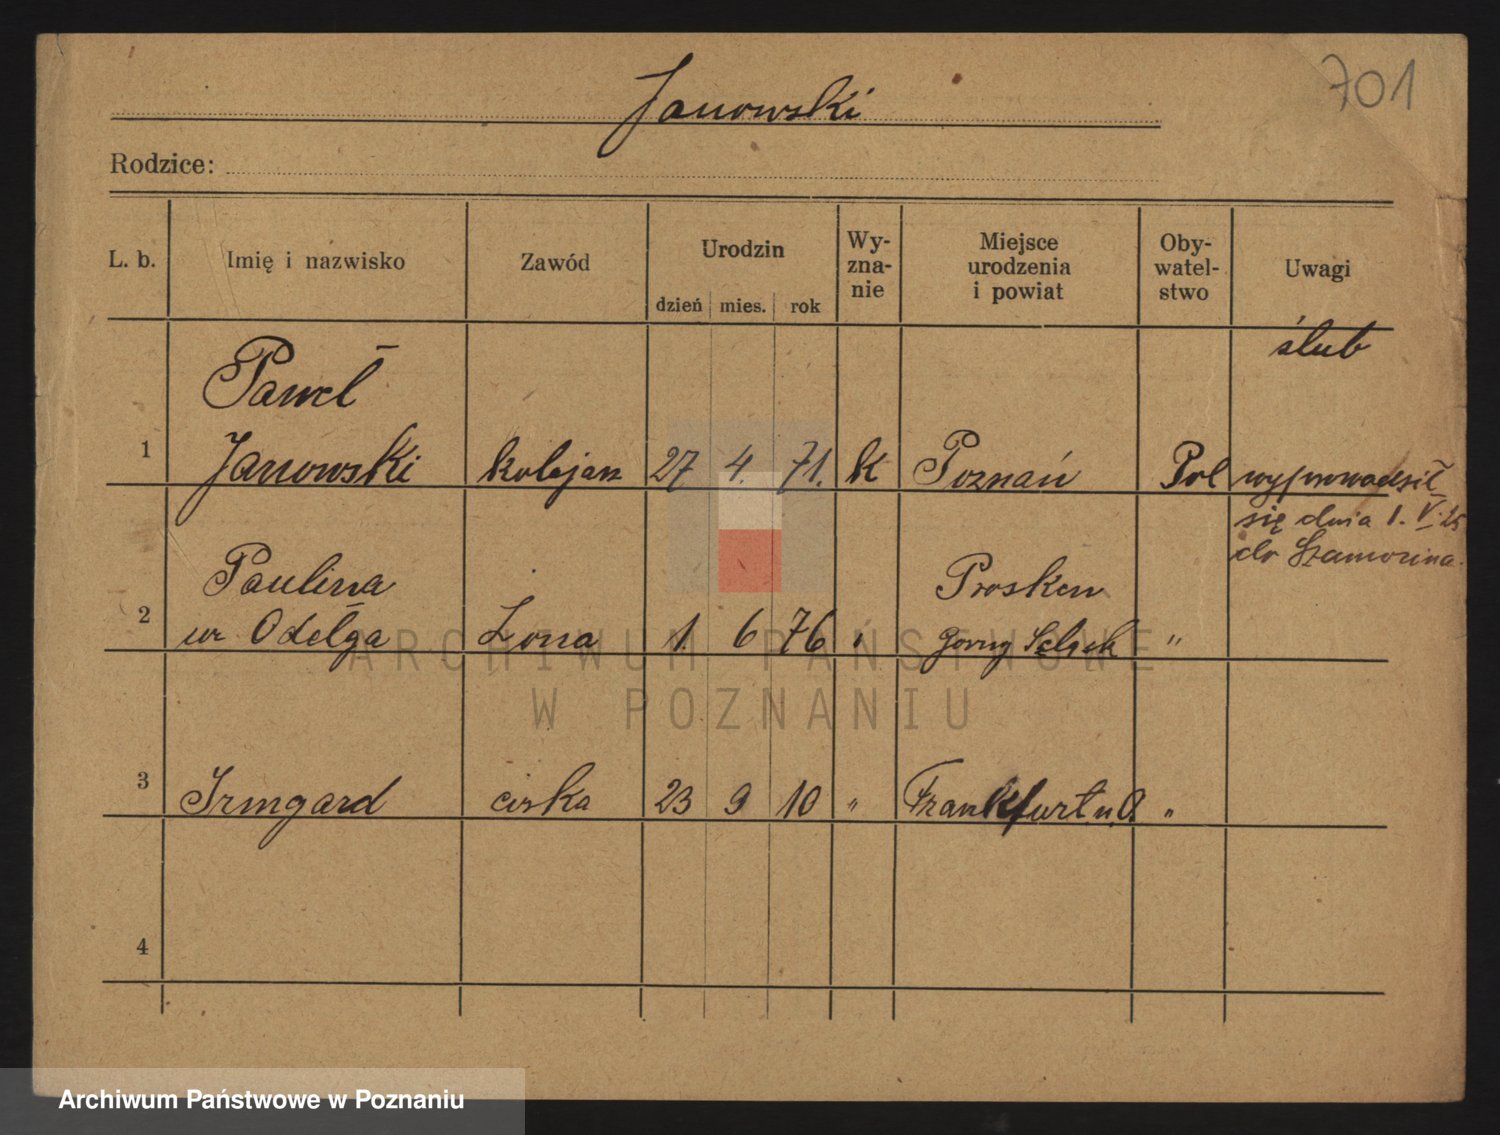 701
Janowski
Rodzice:
L. b. Imię i nazwisko Zawód Urodzin dzień mies. rok Wy-zna-nie Miejsce urodzenia i powiat Oby-watel-stwo Uwagi
ślub
Paweł
1 Janowski kolejarz 27 4. 71. k Poznań Pol wyprowadził
się dnia 1. V. 25
do Szamocina.
Paulina Prosken
2 ur. Odelga Żona 1. 6 76 " Górny "
3 Irmgard córka 23 9 10 " Frankfurt n. O. "
4
ARCHIWUM PAŃSTWOWE
W POZNANIU
Archiwum Państwowe w Poznaniu